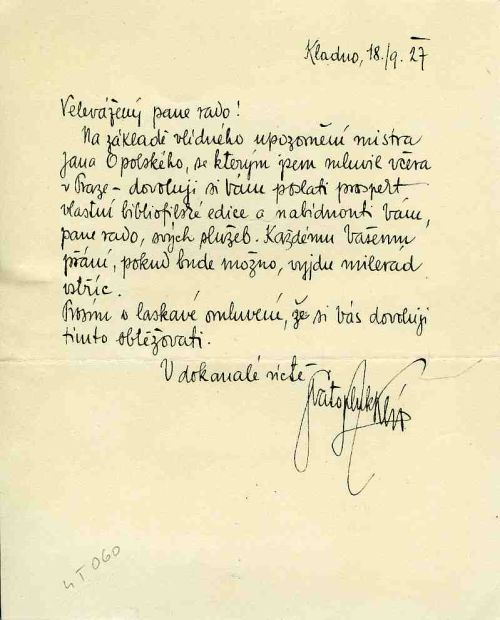 Kladno, 18./9. 27
Velevážený pane rado!
Na základě vlídného upozornění mistra
Jana Opolského, se kterým jsem mluvil včera
v Praze – dovoluji si vám poslati prospekt
vlastní bibliofilské edice a nabídnouti Vám,
pane rado, svých služeb. Každému Vašemu
přání, pokud bude možno, vyjdu milerad
vstříc.
Prosím o laskavé omluvení, že si vás dovoluji
tímto obtěžovati.
V dokonalé úctě
Svatopluk Klír
4 T 060